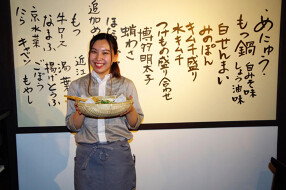 めにゅう・
もつ鍋 白みそ味
しょう油味
白せんまい
みのぽん
キムチ盛り合わせ
水キムチ
つけもの盛り合わせ
博多明太子
蛸わさ
追加め
近江
牛ロース 湯葉
なまふ 揚げとうふ
京水菜 ごぼう
にら キャベツ もやし